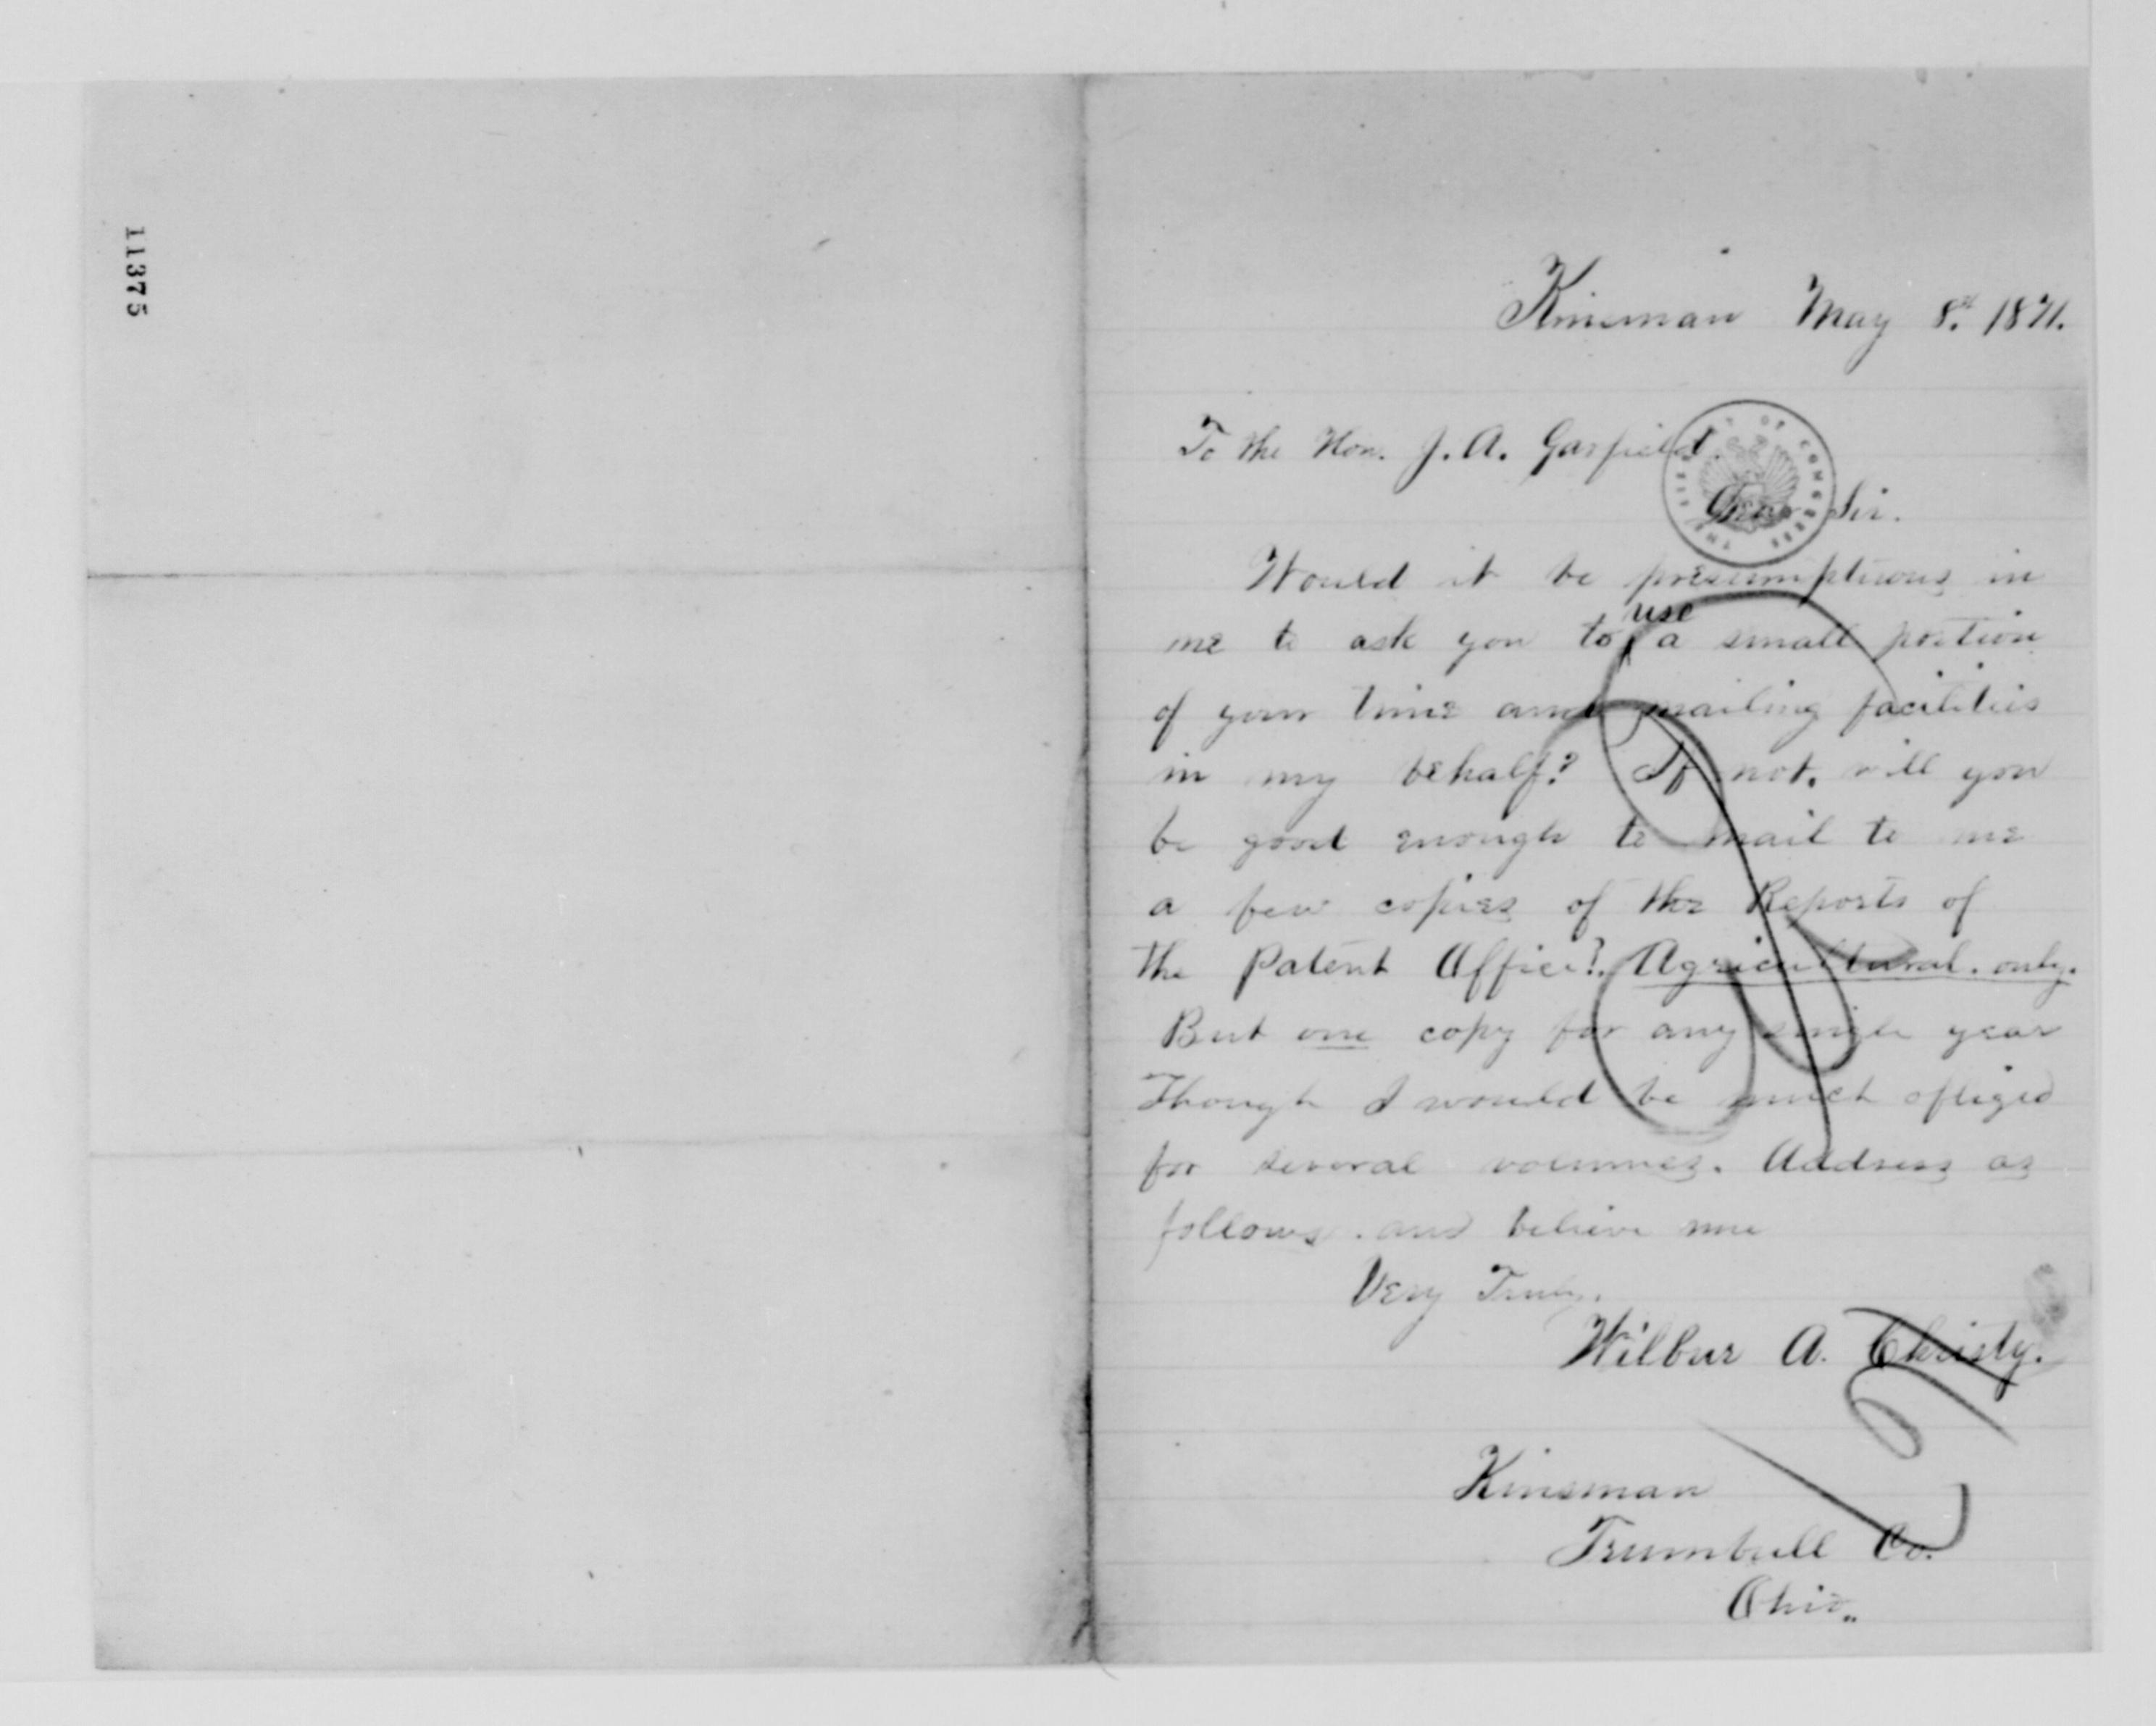 11375
Kinsman May 8th 1871.
To the Hon. J. A. Garfield.
THE LIBRARY OF CONGRESS
Dear Sir.
Would it be presumptuous in
me to ask you to use a small portion
of your time and mailing facilities
in my behalf? If not, will you
be good enough to mail to me
a few copies of the Reports of
the Patent Office? Agricultural. only.
But one copy for any single year
Though I would be much obliged
for several volumes. Address as
follows. and believe me
Very Truly.
Wilbur A. Christy.
Kinsman
Trumbull Co.
Ohio.